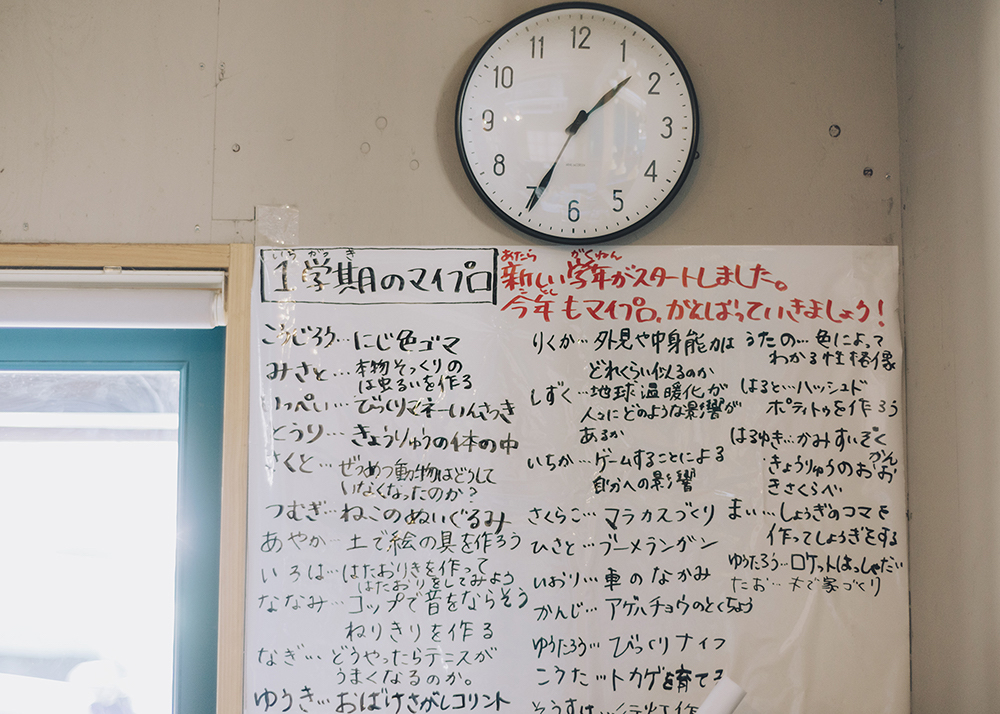 12
1
2
3
4
5
6
7
8
9
10
11
いち がっ き
1学期のマイプロ
あたら がくねん
新しい学年がスタートしました。
ことし
今年もマイプロ、がんばっていきましょう!
こうじろう…にじ色ゴマ
みさと…本物そっくりの
は虫るいを作る
いっぺい…びっくりマネーいんさつき
とうり…きょうりゅうの体の中
さくと…ぜつめつ動物はどうして
いなくなったのか?
つむぎ…ねこのぬいぐるみ
あやか…土で絵の具を作ろう
いろは…はたおりきを作って
はたおりをしてみよう
ななみ…コップで音をならそう
ねりきりを作る
なぎ…どうやったらテニスが
うまくなるのか。
ゆうき…おばけさがしコリント
りくか…外見や中身能力は
どれくらい似るのか
しずく…地球温暖化が
人々にどのような影響が
あるか
いちか…ゲームすることによる
自分への影響
さくらこ…マラカスづくり
ひさと…ブーメランガン
いおり…車のなかみ
かんじ…アゲハチョウのとくちょう
ゆうたろう…びっくりナイフ
こうた…トカゲを育てる
そうすけ…
うたの…色によって
わかる性格像
はると…ハッシュド
ポティトゥを作ろう
はるゆき…かみすいぞく
かん
きょうりゅうのおお
きさくらべ
まい…しょうぎのコマを
作ってしょうぎをする
ゆうたろう…ロケットはっしゃだい
たお…木で家づくり